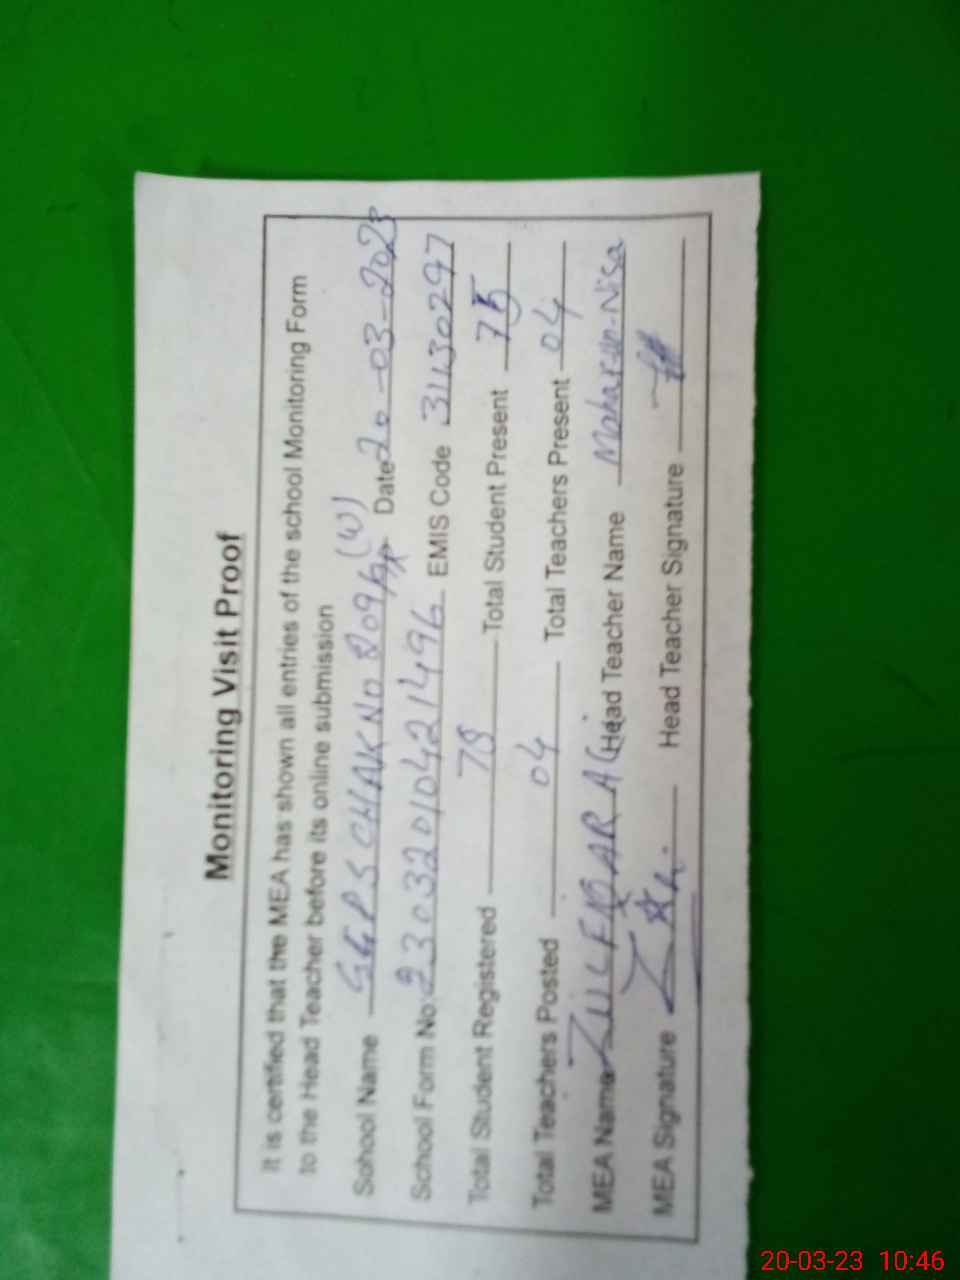 Monitoring Visit Proof
It is certified that the MEA has shown all entries of the school Monitoring Form
to the Head Teacher before its online submission
School Name GGPS CHAK NO 209 (W) Date 20-03-2023
School Form No. 23032010421496 EMIS Code 31130297
Total Student Registered 78 Total Student Present 75
Total Teachers Posted 04 Total Teachers Present 04
MEA Name ZULFIQAR ALI Head Teacher Name Mahar-un-Nisa
MEA Signature Head Teacher Signature
20-03-23 10:46